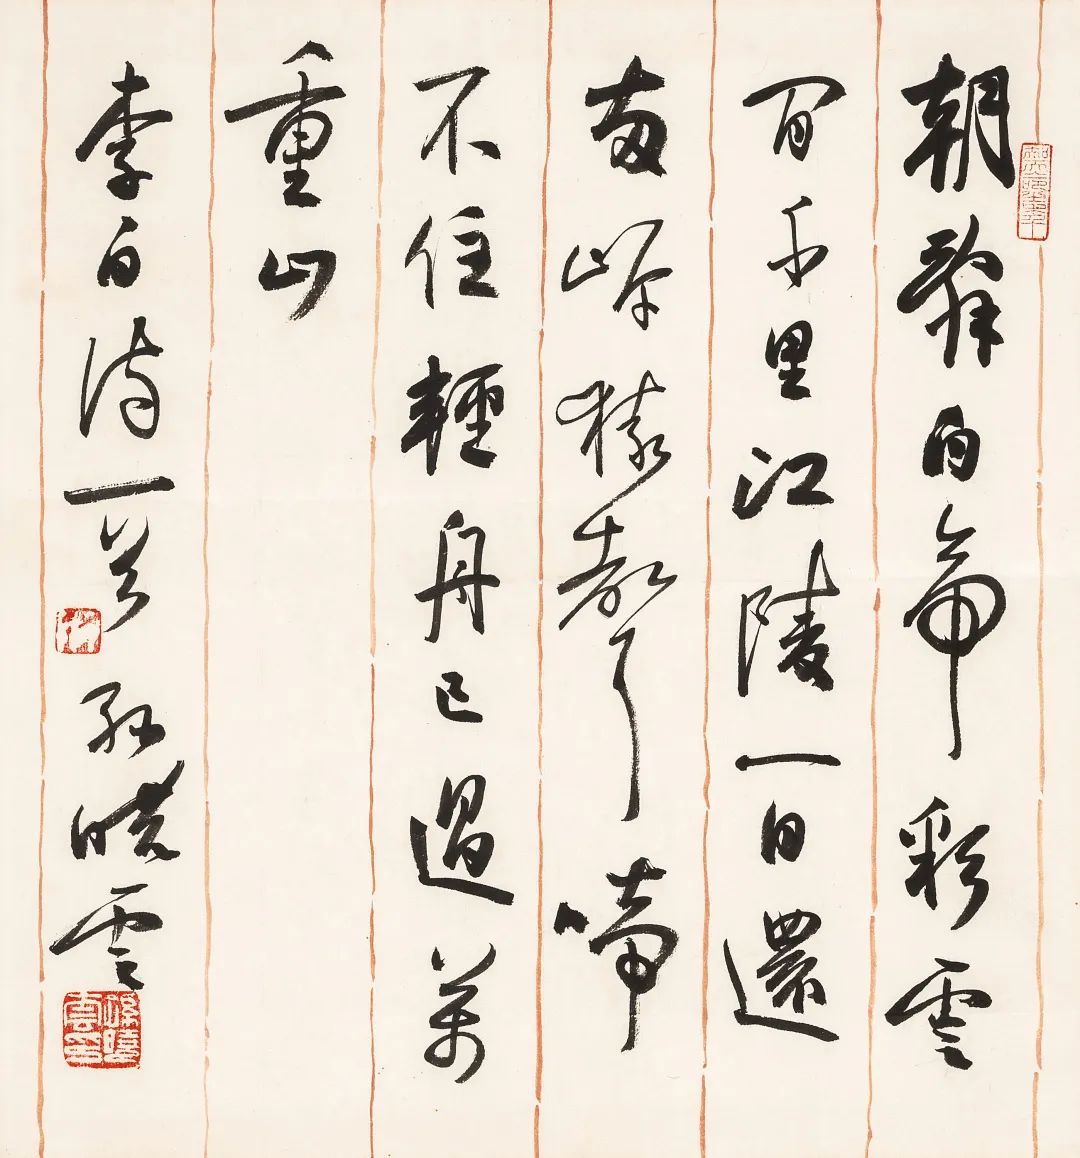 朝辭白帝彩雲
間千里江陵一日還
兩岸猿聲啼
不住輕舟已過萬
重山
李白詩一首 孫曉雲
孫曉雲印